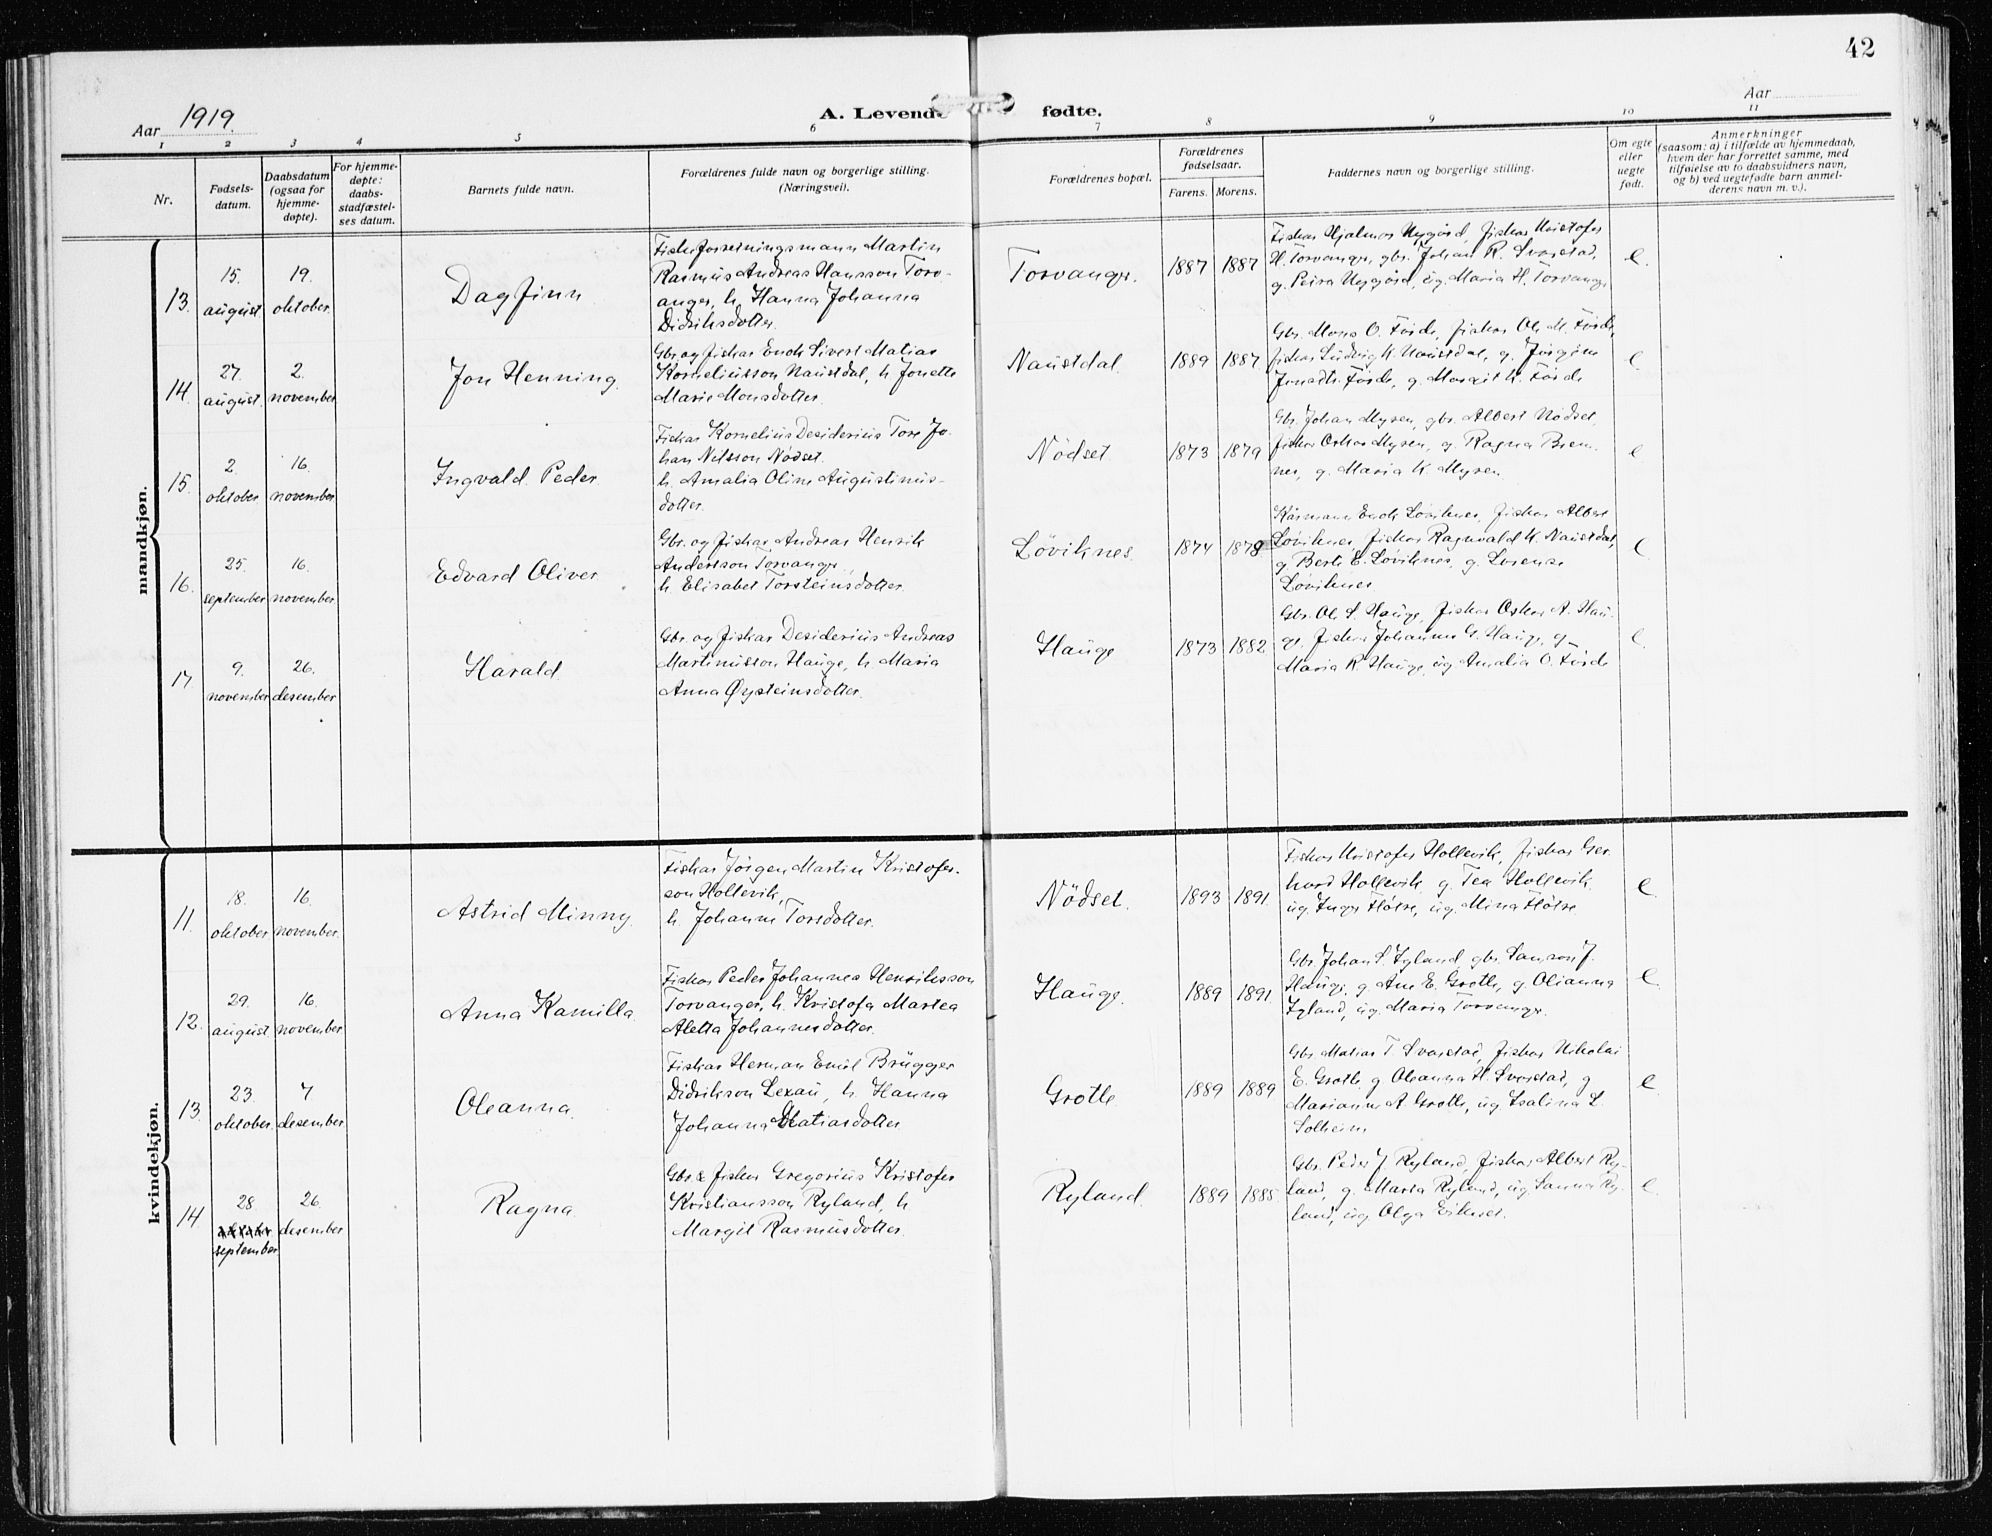 42
Aar 1919.
A. Levende fødte.
Aar
1 2 3 4 5 6 7 8 9 10 11
Nr.
Fødsels-
datum.
Daabsdatum
(ogsaa for
hjemme-
døpte).
For hjemme-
døpte:
daabs-
stadfæstel-
ses datum.
Barnets fulde navn.
Forældrenes fulde navn og borgerlige stilling.
(Næringsvei).
Forældrenes bopæl.
Forældrenes
fødselsaar.
Farens. Morens.
Faddernes navn og borgerlige stilling.
Om egte
eller
uegte
født.
Anmerkninger
(saasom: a) i tilfælde av hjemmedaab,
hvem der har forrettet samme, med
tilføielse av to daabsvidners navn,
og b) ved uegtefødte barn anmel-
derens navn m. v.).
mandkjøn.
13.
15.
august
19.
oktober.
Dagfinn
Fiskeforretningsmann Martin
Rasmus Andreas Hansson Torv-
anger, h. Hanna Johanna
Didriksdotter.
Torvanger.
1887 1887
Fiskar Hjalmar Nygård, fiskar Kristofer
H. Torvanger, gbr. Johan R. Svarstad,
g. Petra Nygård, ug. Maria H. Torvanger
e.
14.
27.
august.
2.
november
Jon Henning.
Gbr. og fiskar Enok Sivert Matias
Korneliusson Naustdal, h. Jonette
Marie Monsdotter.
Naustdal.
1889 1887.
Gbr. Mons O. Förde, fiskar Ole M. Förde,
fiskar Ludvig K. Naustdal, g. Jörgine
Jonsdtr. Förde, g. Margit K. Förde
e.
15.
2.
oktober
16.
november
Ingvald Peder
Fiskar Kornelius Desiderius Tore Jo-
han Nilsson Nödset.
h. Amalia Oline Augustinus-
dotter.
Nödset
1873 1879
Gbr. Johan Myren, gbr. Albert Nödset,
fiskar Oskar Myren, g. Ragna Brem-
nes, g. Maria K. Myren.
e
16.
25.
september
16.
november
Edvard Oliver
Gbr. og fiskar Andreas Henrik
Andersson Torvanger,
h. Elisabet Torsteinsdotter.
Løviknes
1874 1878
Enok Løviknes, fiskar Albert
Løviknes, fiskar Ragnvald K. Naustdal,
g. Berte E. Løviknes, g. Lorense
Løviknes
e
17
9.
november
26.
desember
Harald.
Gbr. og fiskar Desiderius Andreas
Martinusson Hauge, h. Maria
Anna Øysteinsdotter.
Hauge
1873 1882
Gbr. Ole S. Hauge, fiskar Oskar A. Hau-
ge, fiskar Johannes G. Hauge, g.
Maria R. Hauge, ug. Amalia O. Förde
e.
kvindekjøn.
11.
18.
oktober
16.
november.
Astrid Minny.
Fiskar Jörgen Martin Kristofer-
son Hollevik,
h. Johanne Torsdotter.
Nödset.
1893 1891.
Fiskar Kristofer Hollevik, fiskar Ger-
hard Hollevik, g. Tea Hollevik
ug. Inger Flölse, ug. Mina Flölse
e.
12.
29.
august.
16.
november
Anna Kamilla.
Fiskar Peder Johannes Henriksson
Torvanger, h. Kristofa Martea
Aletta Johannesdotter.
Hauge.
1889 1891.
Gbr. Johan S. Ryland, gbr. Samson J.
Hauge, g. Ane E. Grotle, g. Olianna
Ryland, ug. Maria Torvanger.
e.
13.
23.
oktober.
7
desember
Oleanna.
Fiskar Herman Emil Brügger
Didrikson Lexau, h. Hanna
Johanna Matiasdotter
Grotle.
1889 1889
Gbr. Matias T. Svarstad, fiskar Nikolai
E. Grotle, g. Oleanna H. Svarstad, g.
Marianne A. Grotle, ug. Isalina L.
Solheim
e
14.
28
september
26.
desember
Ragna.
Gbr. & fiskar Gregorius Kristofer
Kristiansson Ryland, h
Margit Rasmusdotter.
Ryland.
1889 1885
Gbr. Peder J. Ryland, fiskar Albert Ry-
land, g. Marta Ryland, ug. Sanna Ry-
land, ug. Olga Vikeset.
e.